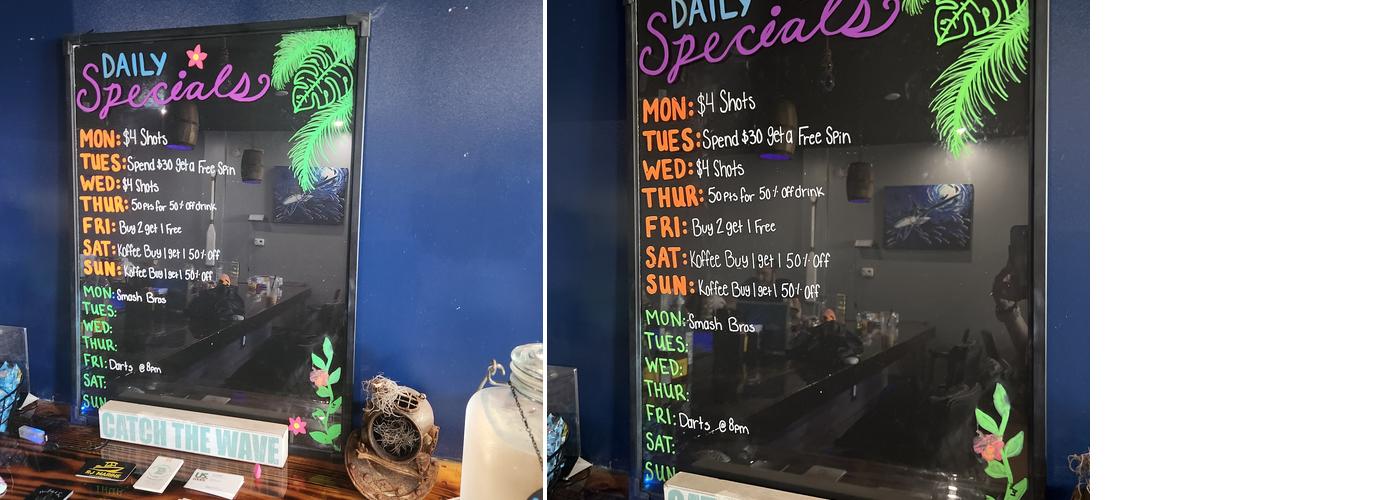 DAILY
Specials
MON: $4 Shots
TUES: Spend $30 get a Free Spin
WED: $4 Shots
THUR: 50pts for 50% off drink
FRI: Buy 2 get 1 Free
SAT: Koffee Buy 1 get 1 50% Off
SUN: Koffee Buy 1 get 1 50% Off
MON: Smash Bros
TUES:
WED:
THUR:
FRI: Darts @ 8pm
SAT:
SUN
CATCH THE WAVE
DAILY
Specials
MON: $4 Shots
TUES: Spend $30 get a Free Spin
WED: $4 Shots
THUR: 50pts for 50% off drink
FRI: Buy 2 get 1 Free
SAT: Koffee Buy 1 get 1 50% Off
SUN: Koffee Buy 1 get 1 50% Off
MON: Smash Bros
TUES:
WED:
THUR:
FRI: Darts @ 8pm
SAT:
SUN